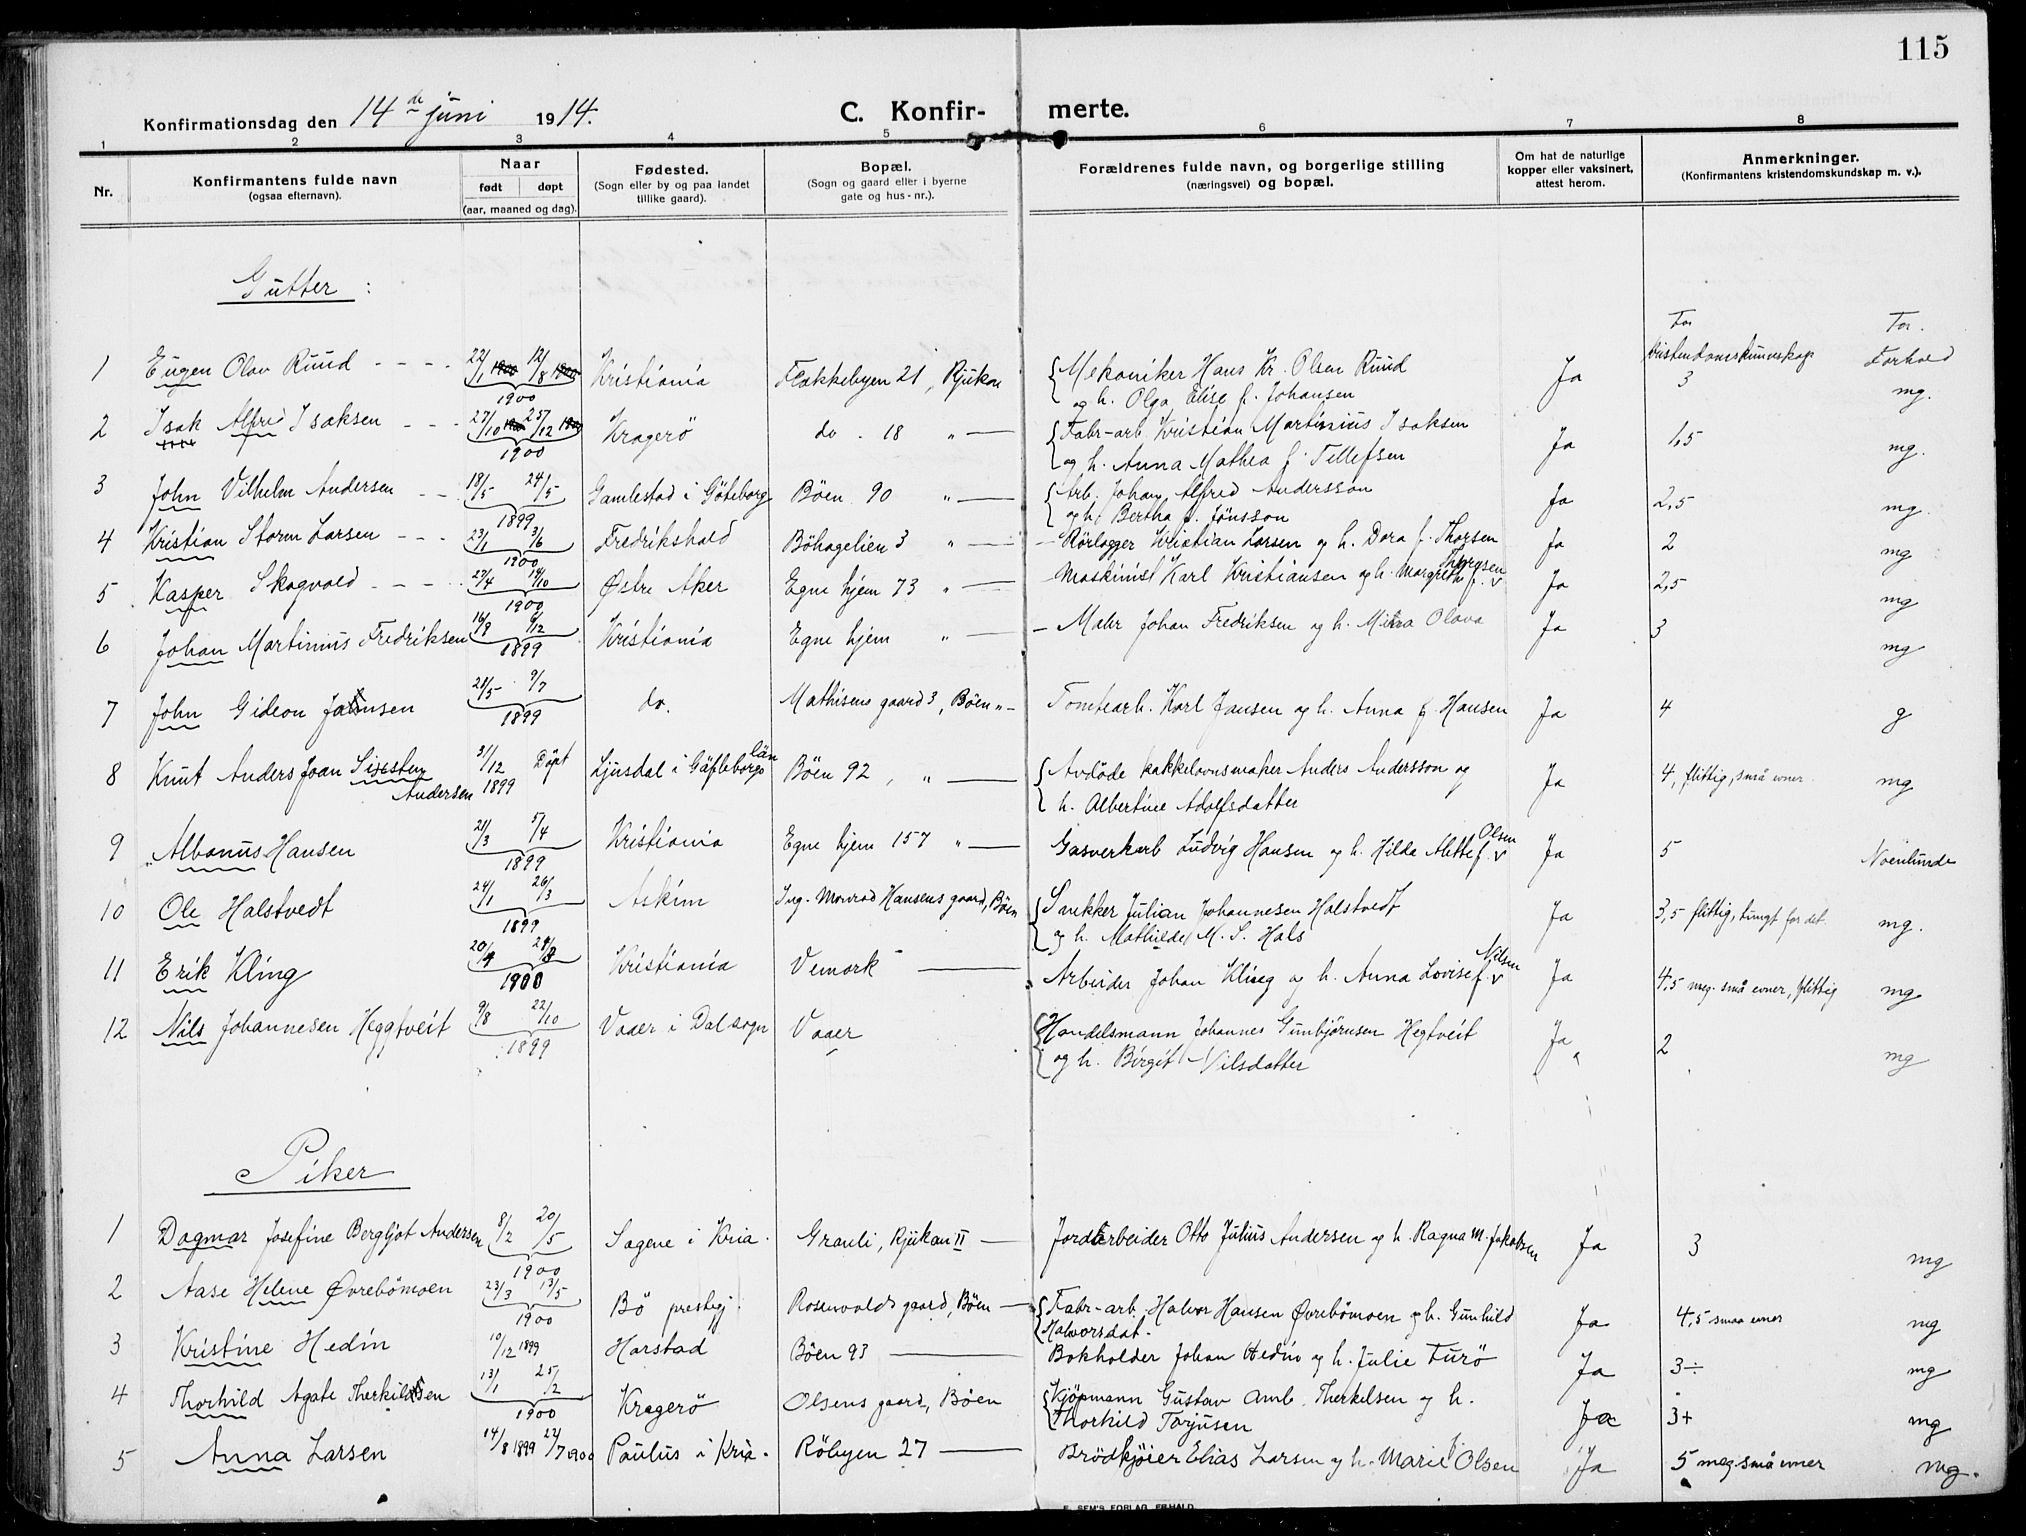 115
Konfirmationsdag den 14de juni 1914. C. Konfir- merte.
1 2 3 4 5 6 7 8
Nr. Konfirmantens fulde navn (ogsaa efternavn). Naar født døpt (aar, maaned og dag). Fødested. (Sogn eller by og paa landet tillike gaard). Bopæl. (Sogn og gaard eller i byerne gate og hus-nr.). Forældrenes fulde navn, og borgerlige stilling (næringsvei) og bopæl. Om hat de naturlige kopper eller vaksinert, attest herom. Anmerkninger. (Konfirmantens kristendomskundskap m. v.).
Gutter :
For kristendomskunnskap For. Forhold
1 Eugen Olav Ruud 22/1 12/8 1900 Kristiania Flakkebyen 21, Rjukan Mekaniker Hans Kr. Olsen Ruud Ja 3 mg.
og h. Olga Elise f. Johansen
2 Isak Alfred Isaksen 27/10 25/12 1900 Kragerö do. 18 " Fabr-arb. Kristian Martinius Isaksen Ja 1,5 mg.
og h. Anna Mathea f. Tellefsen
3 John Vilhelm Andersen 18/5 24/5 1899 Gamlestad i Göteborg Böen 90 " Arb. Johan Alfred Andersson Ja 2,5 mg
og h. Bertha f. Jönsson
4 Kristian Storm Larsen 23/1 3/6 1900 Fredrikshald Böhagelien 3 " Rörlegger Kristian Larsen og h. Dora f. Thorsen Ja 2 mg
5 Kasper Skogvold 27/4 14/10 1900 Østre Aker Egne hjem 73 " Maskinist Karl Kristiansen og h. Margrethe f. Thorgsen Ja 2,5 mg
6 Johan Martinius Fredriksen 16/9 6/12 1899 Kristiania Egne hjem " Maler Johan Fredriksen og h. Olava Ja 3 mg
7 John Gideon Jansen 28/5 9/7 1899 do. Mathisens gaard 3, Böen " Tomtearb. Karl Jansen og h. Anna f. Hansen Ja 4 g
8 Knut Anders Joan Sixsten Andersen 31/12 1899 Döpt Ljusdal i Gäfleborgs län Böen 92, " Avdöde kakkelovnsmaker Anders Andersson og Ja 4, flittig, små evner mg
h. Albertine Adolfsdatter
9 Albanus Hansen 21/3 5/4 1899 Kristiania Egne hjem 157 " Gasverkarb Ludvig Hansen og h. Hilda Alette f. Olsen Ja 5 Noenlunde
10 Ole Halstvedt 24/1 26/3 1899 Askim Ing. Monrad Hansens gaard, Böen Snekker Julian Johannesen Halstvedt Ja 3,5 flittig, tungt for det mg.
og h. Mathilde M. S. Hals
11 Erik Kling 20/4 1900 Kristiania Vemork Arbeider Johan Kling og h. Anna Lovise f. Nilsen Ja 4,5 meg. små evner, flittig mg
12 Nils Johannesen Heggtveit 9/8 22/10 1899 Vaaer i Dal sogn Vaaer Handelsmann Johannes Gunbjörnsen Hegtveit Ja 2 mg
og h. Birgit Nilsdatter
Piker
1 Dagmar Josefine Bergljot Andersen 8/2 20/5 1900 Sagene i Kria. Granli, Rjukan II Jordarbeider Otto Julius Andersen og h. Ragna M. f. Jakobsen Ja 3 mg
2 Aase Helene Øvrebömoen 23/3 13/5 1900 Bö prestegj. Rosenvolds gaard, Böen Fabr-arb. Halvor Hansen Øvrebömoen og h. Gunhild Ja 4,5 smaa evner mg
Halvorsdat.
3 Kristine Hedin 10/12 1899 Harstad Böen 93 Bokholder Johan Hedin og h. Julie Furö Ja 3÷ mg
4 Thorhild Agate Therkilsen 13/1 25/2 1900 Kragerö Olsens gaard, Böen Kjöpmann Gustav Amb. Therkelsen og h. Ja 3+ mg
Thorhild Torjusen
5 Anna Larsen 14/8 1899 22/7 1900 Paulus i Kria. Röbyen 27 Brödkjörer Elias Larsen og h. Marie f. Olsen Ja 5 meg. små evner mg.
E. SEM'S FORLAG, FR.HALD